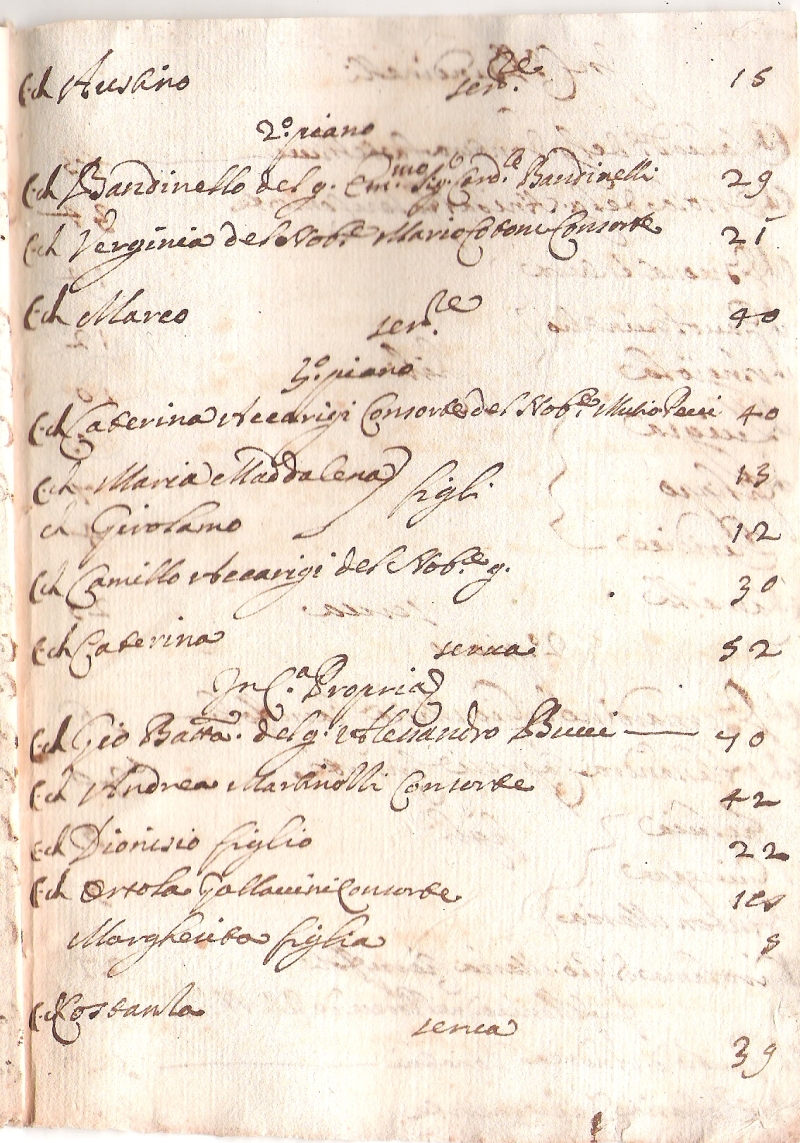 C. ch Austino ser.re 15
2.o piano
C. ch Bandinello del q. Em.mo Sig. Card.le Bandinelli 29
C. ch Verginia del Nob.e Mario Consorte 21
C. ch Marco ser.re 40
3.o piano
C. ch Caterina Accarigi Consorte del Nob.e Mutio Pecci 40
C. ch Maria Maddalena 13
ch Girolamo figli 12
C. ch Camillo Accarigi del Nob.e q. 30
C. ch Caterina serua 52
In C.a Propria
C. ch Gio Batta. del q. Alessandro Bucci 70
C. ch Andrea Martinolli Consorte 42
C. ch Dionisio figlio 22
C. ch Ortola Gallaccini Consorte
Margherita figlia
C. ch Costanza serua 39